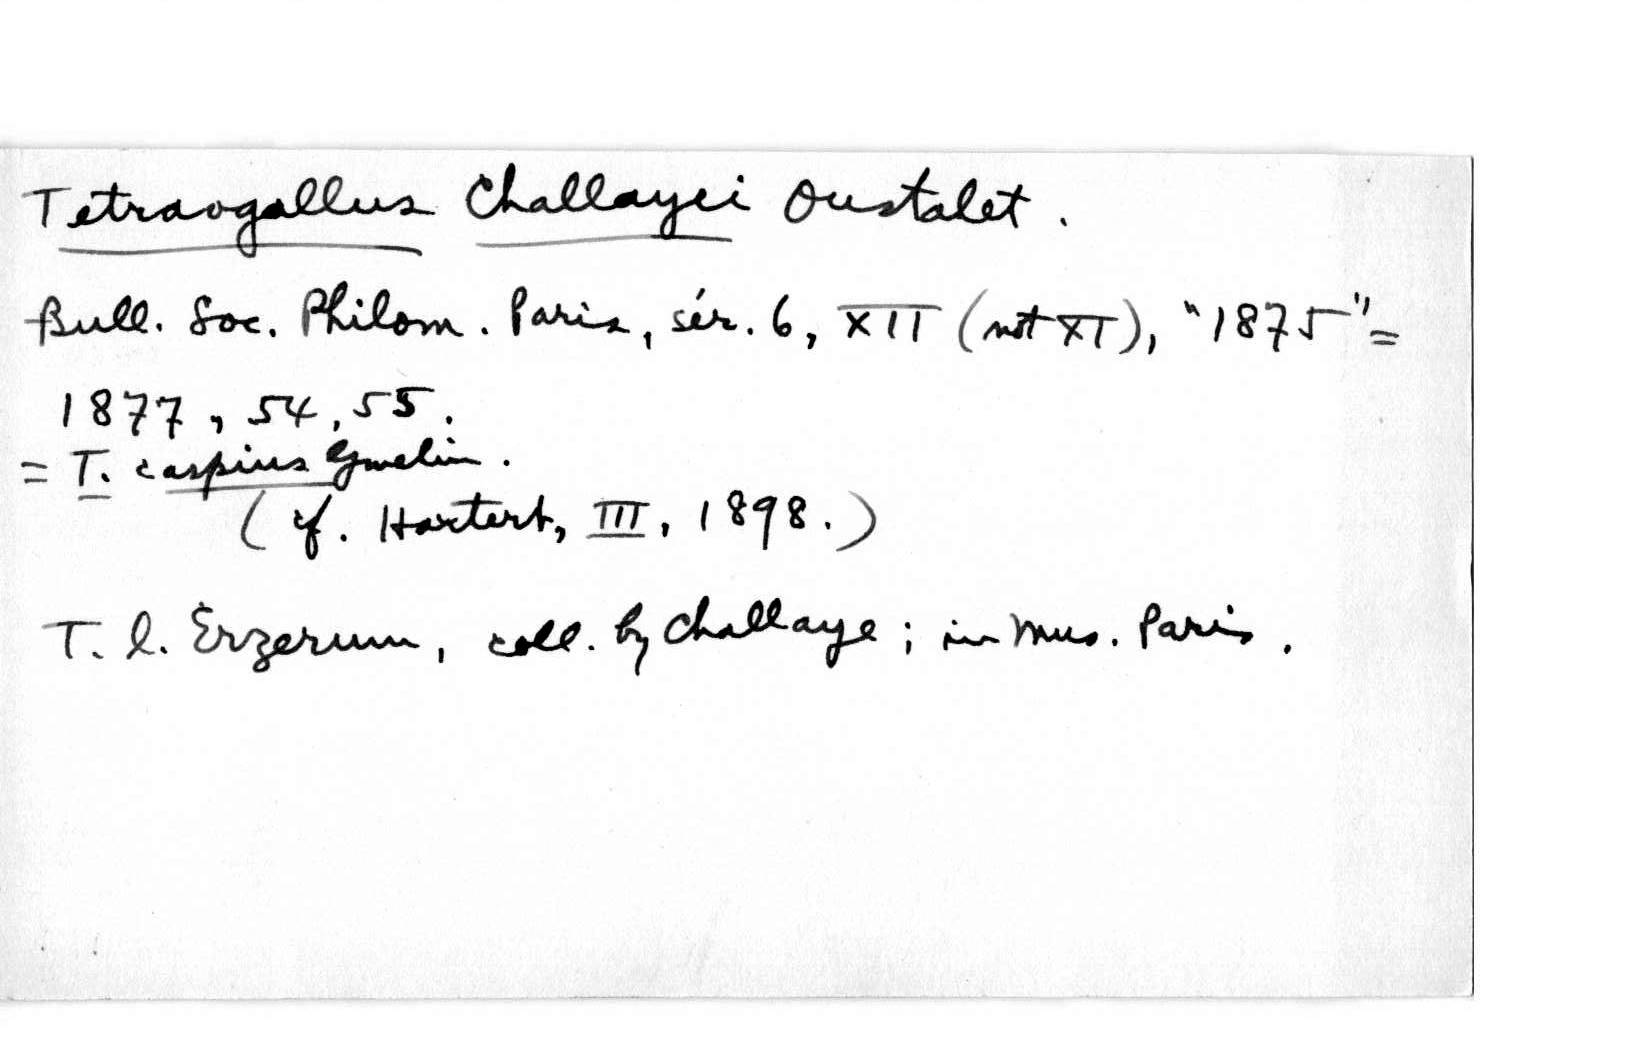 Tetraogallus Challayei Oustalet.
Bull. Soc. Philom. Paris, sér. 6, XII (not XI), "1875" =
1877, 54, 55.
= T. caspius Gmelin.
(cf. Hartert, III, 1898.)
T. l. Erzerum, coll. by Challaye; in Mus. Paris.